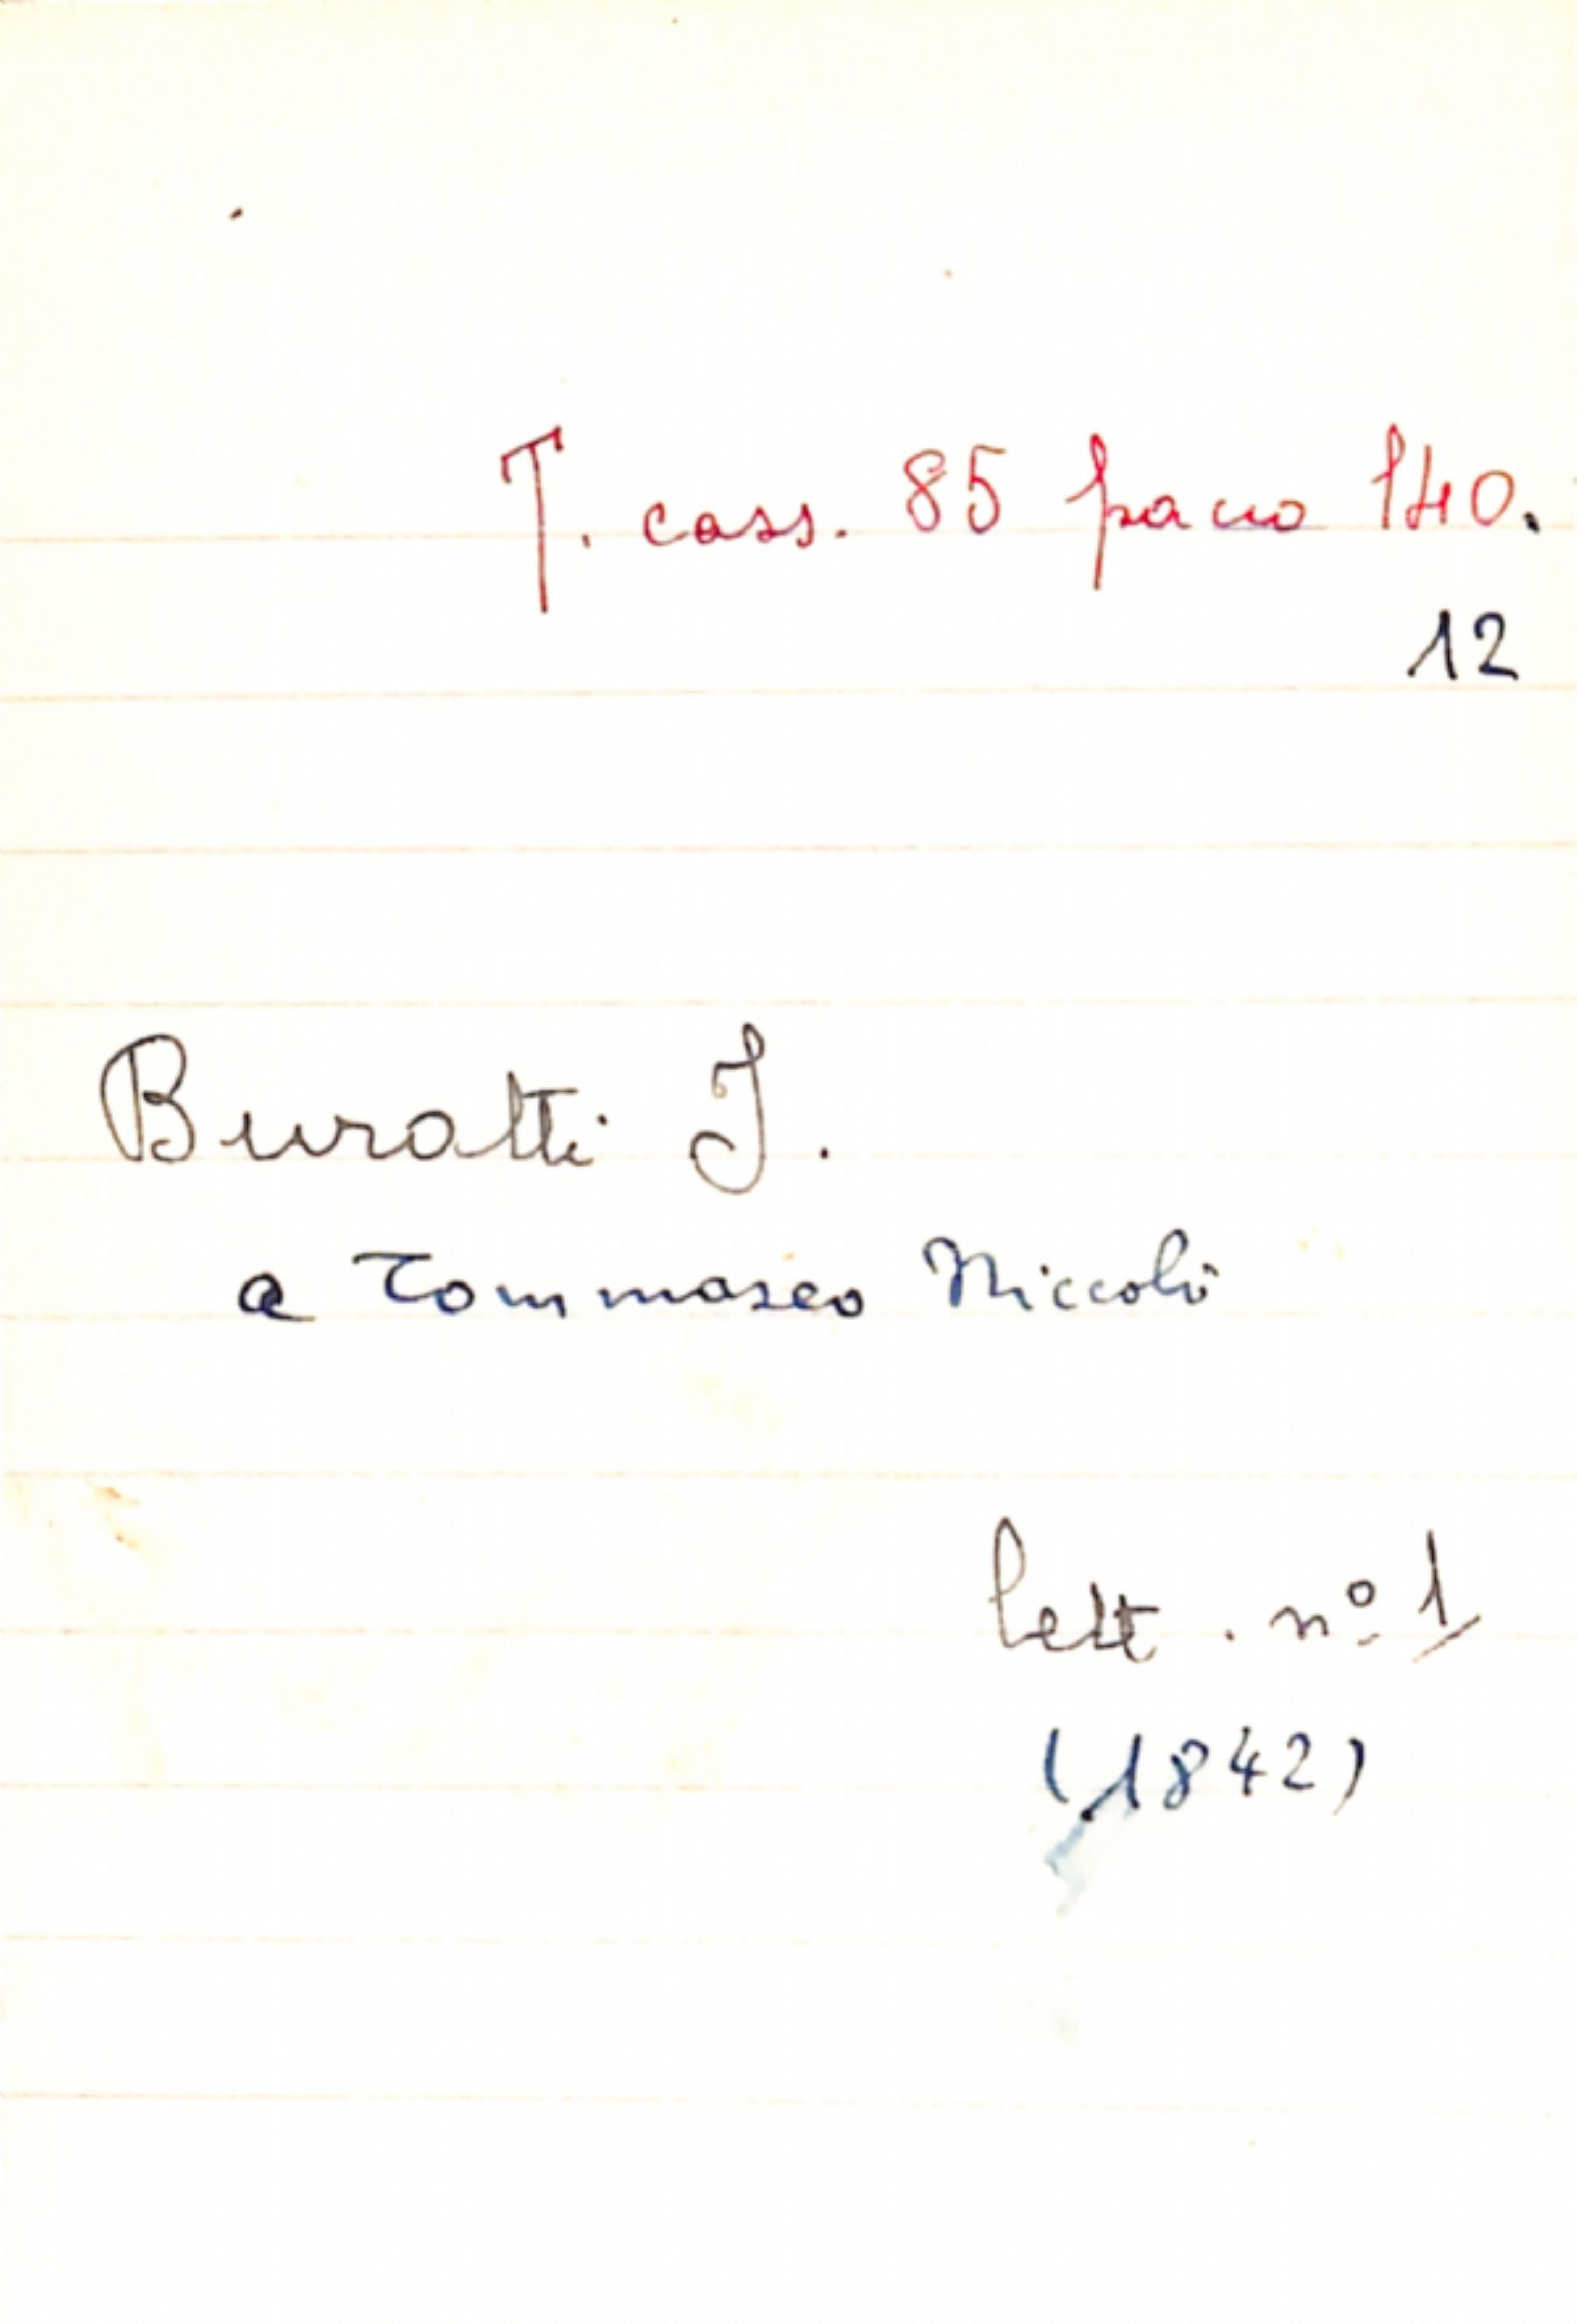 T. cass. 85 pacco 140.
12
Buratti J.
a Tommaseo Niccolò
lett. nº 1
(1842)